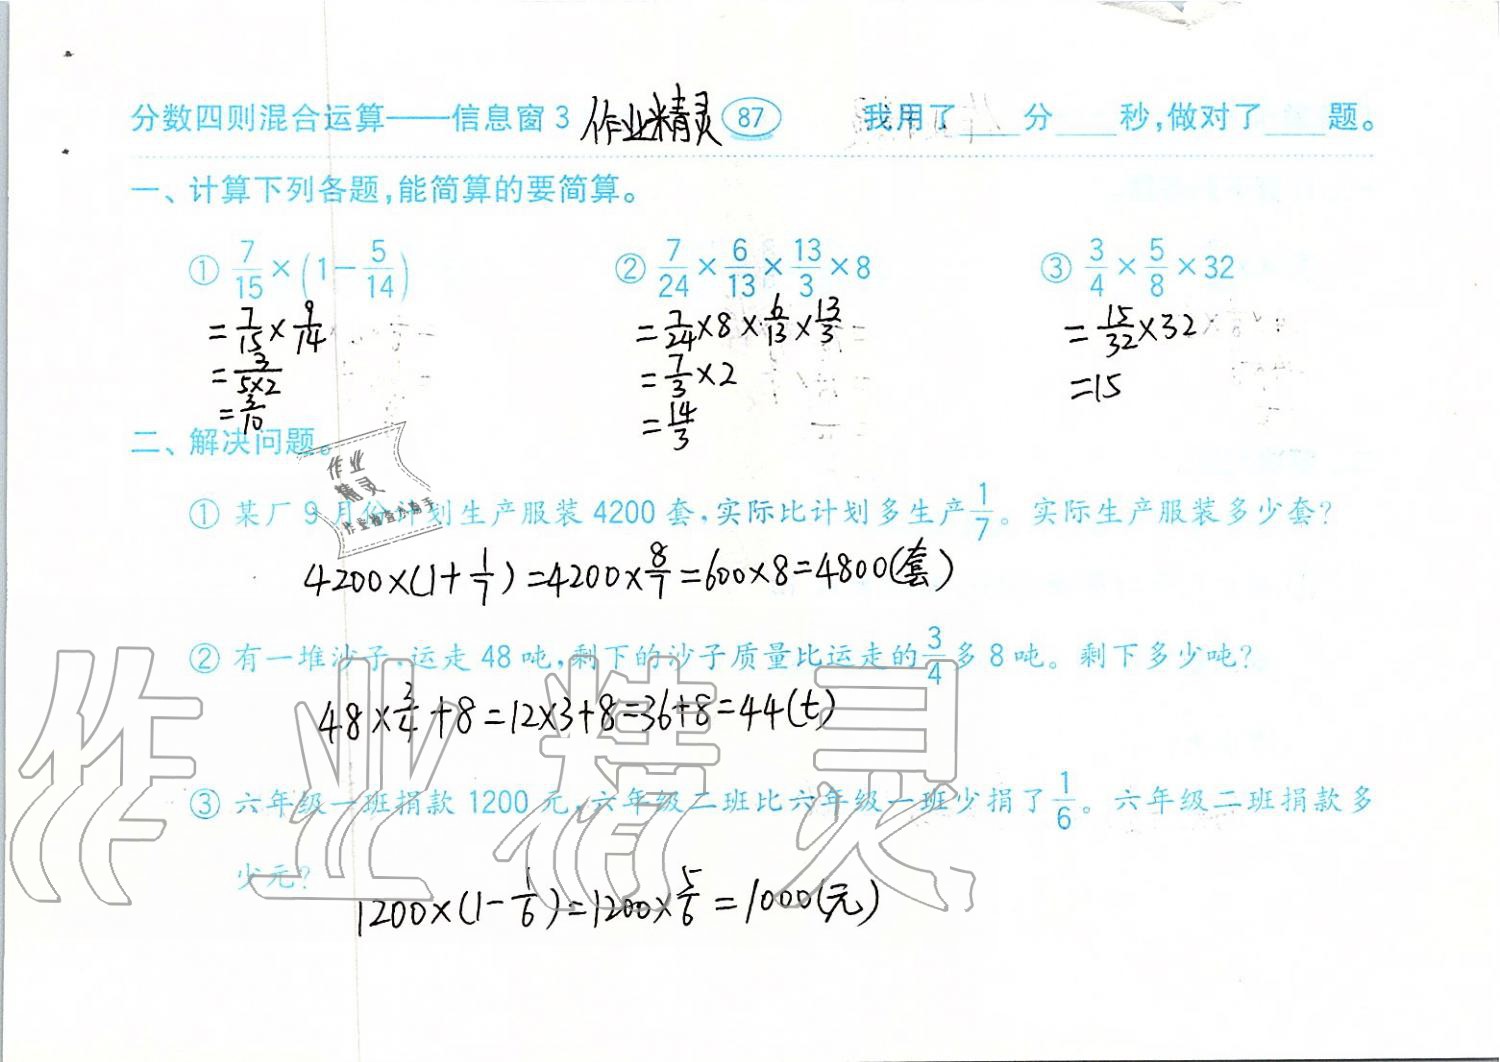 分数四则混合运算——信息窗3 作业精灵 87 我用了____分____秒,做对了____题。
一、计算下列各题,能简算的要简算。
① 7/15×(1-5/14) ② 7/24×6/13×13/3×8 ③ 3/4×5/8×32
=7/15×9/14 =7/24×8×6/13×13/3 =15/32×32
=3/(5×2) =7/3×2 =15
=3/10 =14/3
二、解决问题。
作业
精灵
① 某厂9月份计划生产服装4200套,实际比计划多生产1/7。实际生产服装多少套?
4200×(1+1/7)=4200×8/7=600×8=4800(套)
② 有一堆沙子,运走48吨,剩下的沙子质量比运走的3/4多8吨。剩下多少吨?
48×3/4+8=12×3+8=36+8=44(t)
作业精灵
③ 六年级一班捐款1200元,六年级二班比六年级一班少捐了1/6。六年级二班捐款多
少元?
1200×(1-1/6)=1200×5/6=1000(元)